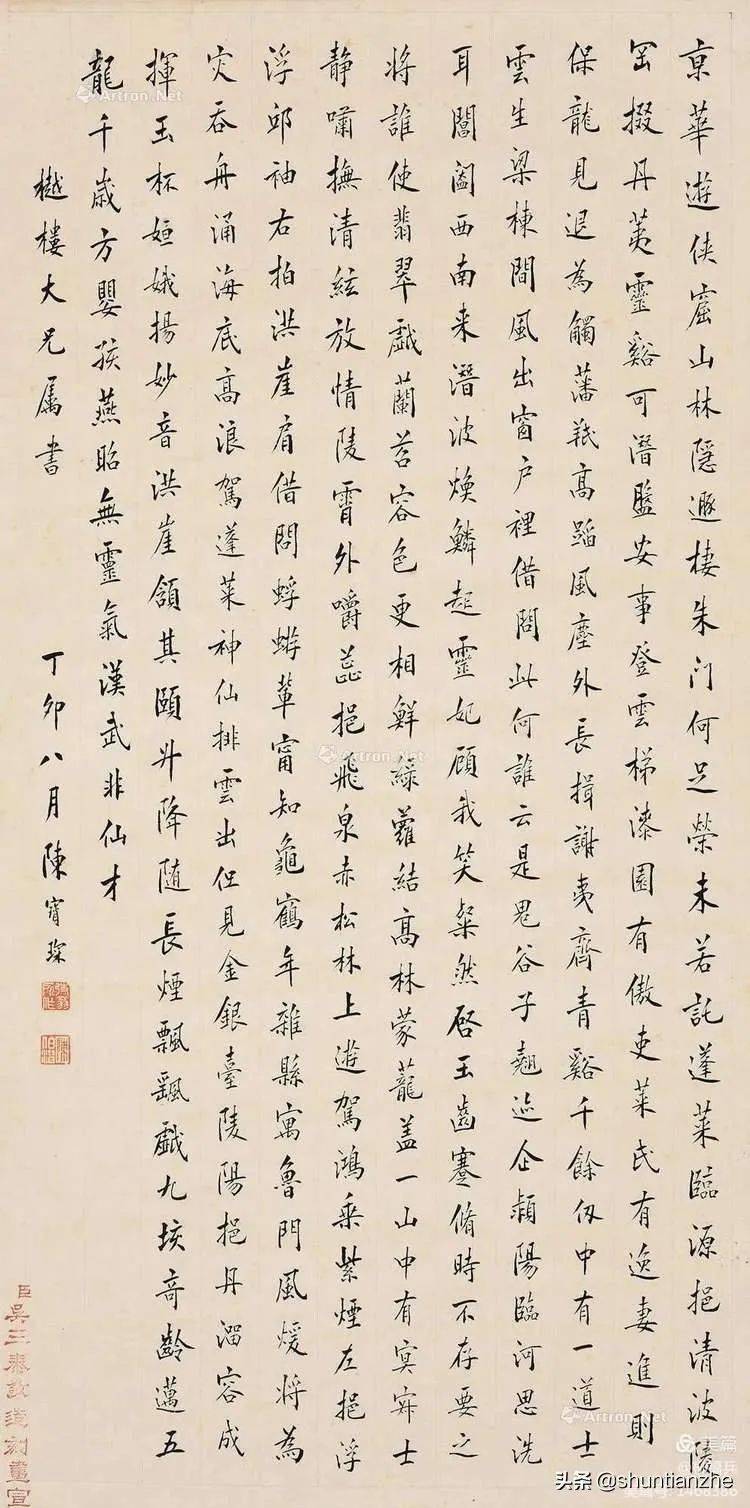 京華遊俠窟山林隱遯棲朱门何足榮未若託蓬萊臨源挹清波陵
岡掇丹荑靈谿可潛盤安事登雲梯漆園有傲吏萊氏有逸妻進則
保龍見退為觸藩羝高蹈風塵外長揖謝夷齊青谿千餘仭中有一道士
雲生梁棟間風出窗户裡借問此何誰云是鬼谷子翹迹企潁陽臨河思洗
耳閶闔西南来潛波煥鱗起靈妃顧我笑粲然啓玉齒蹇脩時不存要之
將誰使翡翠戲蘭苕容色更相鮮綠蘿結高林蒙蘢盖一山中有冥寂士
静嘯撫清絃放情陵霄外嚼蕊挹飛泉赤松林上遊駕鴻乘紫煙左挹浮
浮邱袖右拍洪崖肩借問蜉蝣輩甯知龜鶴年雜縣寓魯門風煖將為
灾吞舟涌海底高浪駕蓬萊神仙排雲出但見金銀臺陵陽挹丹溜容成
揮玉杯姮娥揚妙音洪崖頷其頤升降随長煙飄颻戲九垓奇齡邁五
龍千歲方嬰孩燕昭無靈氣漢武非仙才
樾樓大兄属書
丁卯八月陳寶琛
臣吴三泰敬造刻畫宣
Artron.Net
Artron.Net
Artron.Net
Artron.Net
Artron.Net
美篇
头条 @shuntianzhe